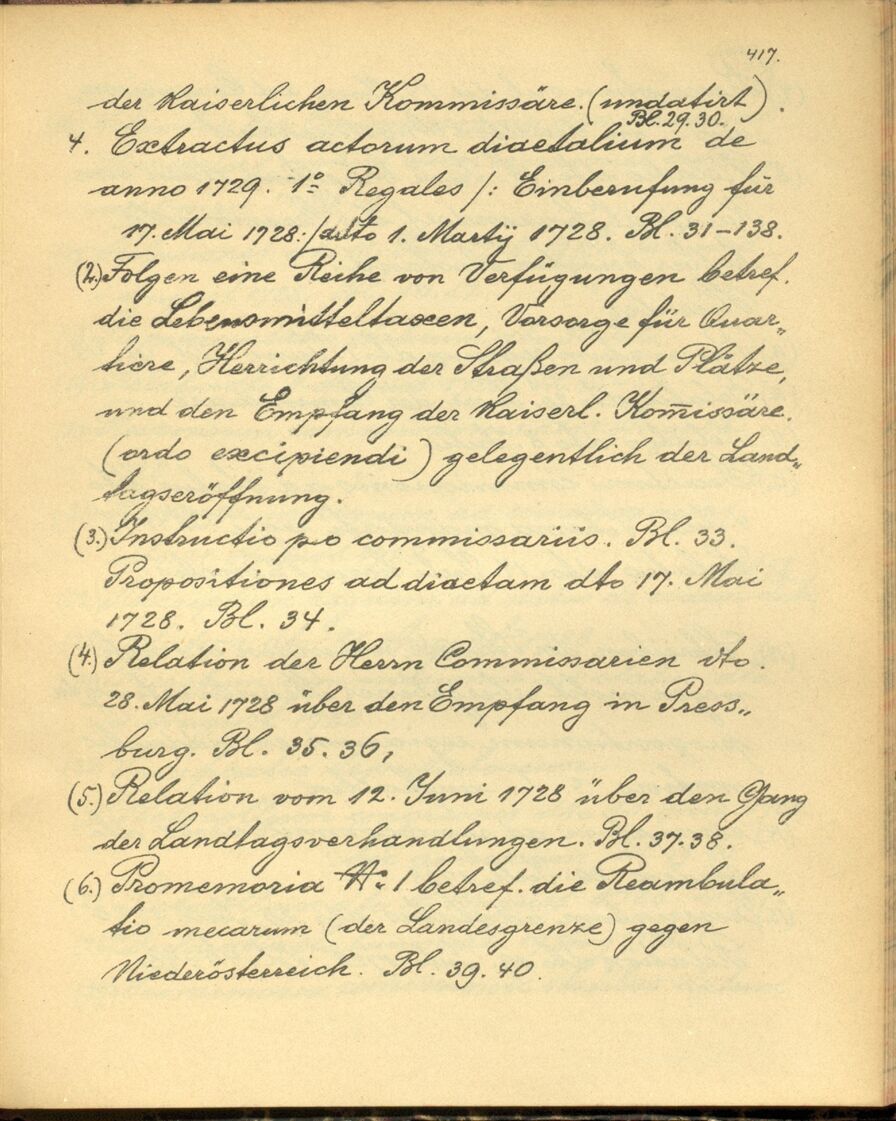 417.
der Kaiserlichen Kommissäre. (undatirt).
Bl. 29. 30.
4. Extractus actorum diaetalium de
anno 1729. 1º Regales /: Einberufung für
17. Mai 1728 :/ dto 1. Martij 1728. Bl. 31-138.
(2.) Folgen eine Reihe von Verfügungen betref.
die Lebensmitteltaxen, Vorsorge für Quar„
tiere, Herrichtung der Straßen und Plätze,
und den Empfang der Kaiserl. Kom̅issäre.
(ordo excipiendi) gelegentlich der Land„
tagseröffnung.
(3.) Instructio pro commissariis. Bl. 33.
Propositiones ad diaetam dto 17. Mai
1728. Bl. 34.
(4.) Relation der Herrn Commissarien dto.
28. Mai 1728 über den Empfang in Press„
burg. Bl. 35. 36,
(5.) Relation vom 12. Juni 1728 über den Gang
der Landtagsverhandlungen. Bl. 37. 38.
(6.) Promemoria Nº 1 betref. die Reambula„
tio mecarum (der Landesgrenze) gegen
Niederösterreich. Bl. 39. 40.